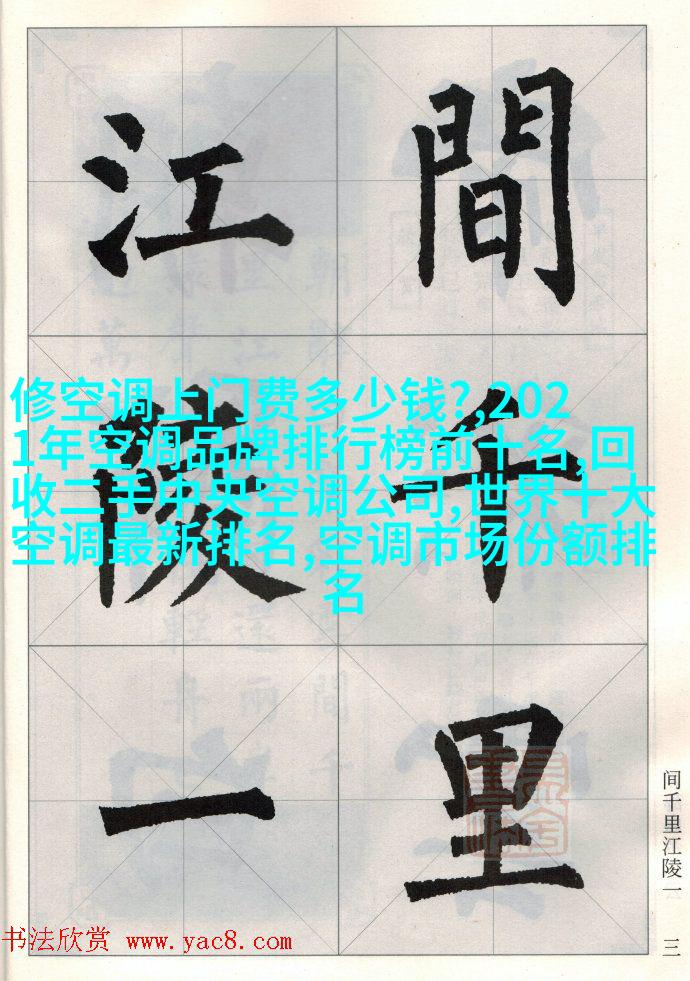 間千里
江陵一
修空调上门费多少钱?,202
1年空调品牌排行榜前十名,回
收二手中央空调公司,世界十大
空调最新排名,空调市场份额排
名
间千里江陵一
三
书法欣赏 www.yac8.com